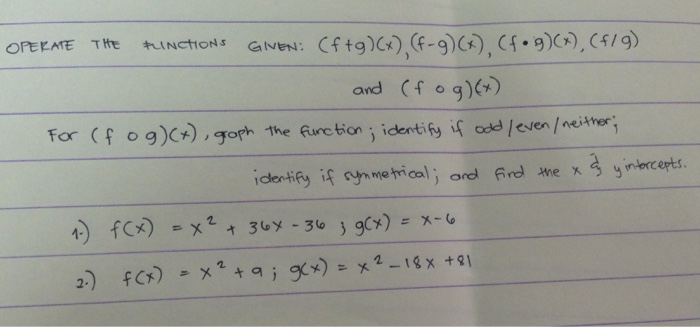 OPERATE THE FUNCTIONS GIVEN: (f+g)(x), (f-g)(x), (f•g)(x), (f/g)
and (f o g)(x)
For (f o g)(x), graph the function; identify if odd/even/neither;
identify if symmetrical; and find the x & y intercepts.
1.) f(x) = x² + 36x - 36 ; g(x) = x-6
2.) f(x) = x² + 9 ; g(x) = x² - 18x + 81